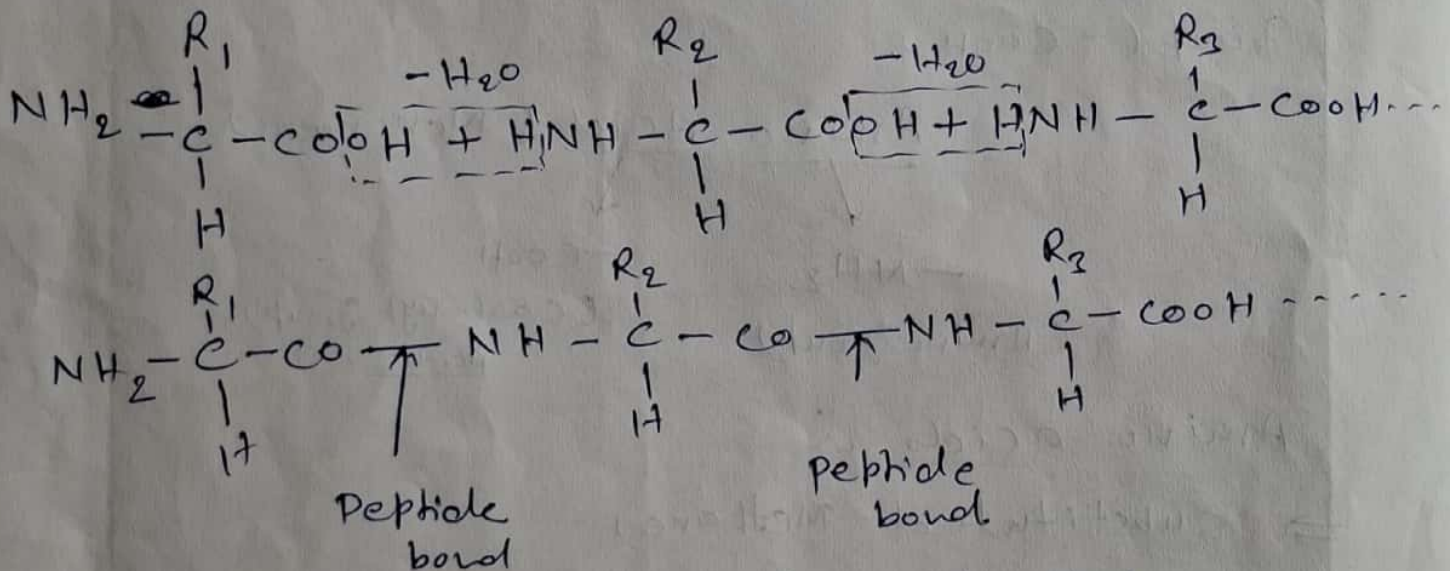 R1 R2 R3
-H2O -H2O
NH2 - C - COOH + HNH - C - COOH + HNH - C - COOH...
H H H
R1 R2 R3
NH2 - C - CO - NH - C - CO - NH - C - COOH .....
H H H
Peptide peptide
bond bond